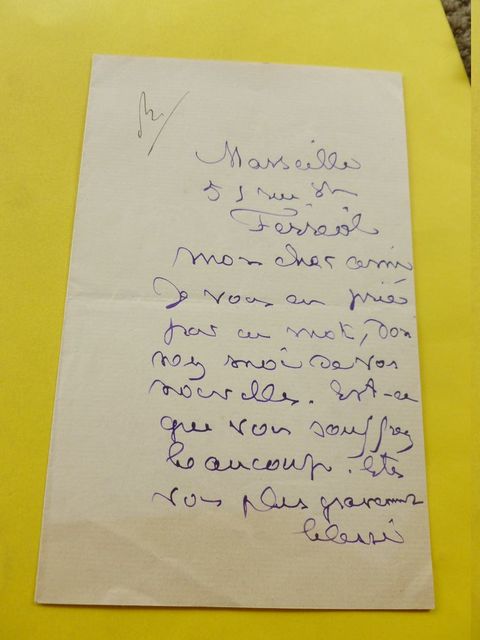 Marseille
51 rue St
Ferréol
Mon cher ami
Je vous en prie
par un mot, don
nez moi de vos
nouvelles. Est-ce
que vous souffrez
beaucoup. Etes
vous plus gravement
blessé